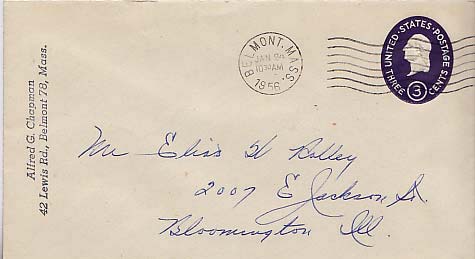 Alfred G. Chapman
42 Lewis Rd., Belmont 78, Mass.
BELMONT, MASS.
JAN
10 AM
1956
UNITED·STATES·POSTAGE
THREE 3 CENTS
Mr Elias W
2007 E Jackson St.
Bloomington Ill.